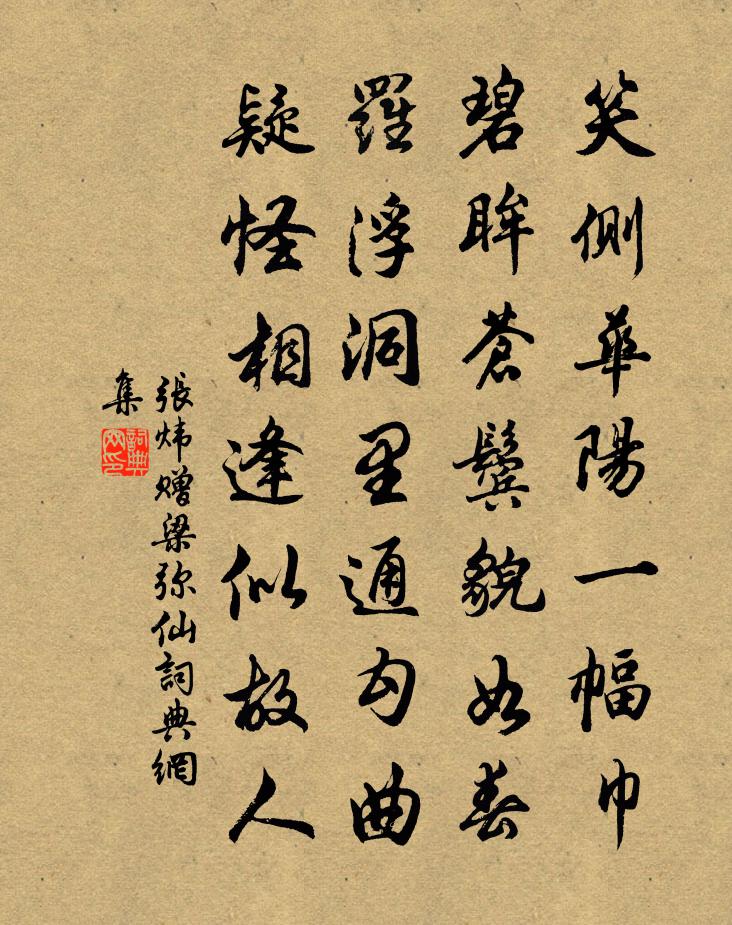 笑側華陽一幅巾
碧眸蒼鬢貌如春
羅浮洞里通勾曲
疑怪相逢似故人
張炜贈梁弥仙詞典網
集
詞典網印